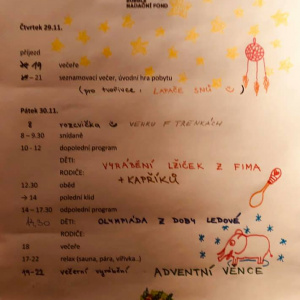 NADAČNÍ FOND
Čtvrtek 29.11.
příjezd
19 večeře
– 21 seznamovací večer, úvodní hra pobytu
(pro tvořivce: LAPAČE SNŮ)
Pátek 30.11.
rozcvička VENKU V TRENKÁCH
8 – 9.30 snídaně
10 - 12 dopolední program
DĚTI: VYRÁBĚNÍ LŽIČEK Z FIMA
RODIČE: + KAPŘÍKŮ
12.30 oběd
→ 14 polední klid
14 – 17.30 odpolední program
DĚTI: OLYMPIÁDA Z DOBY LEDOVÉ
RODIČE:
18 večeře
17-22 relax (sauna, pára, vířivka..)
19-22 večerní vyrábění ADVENTNÍ VĚNCE